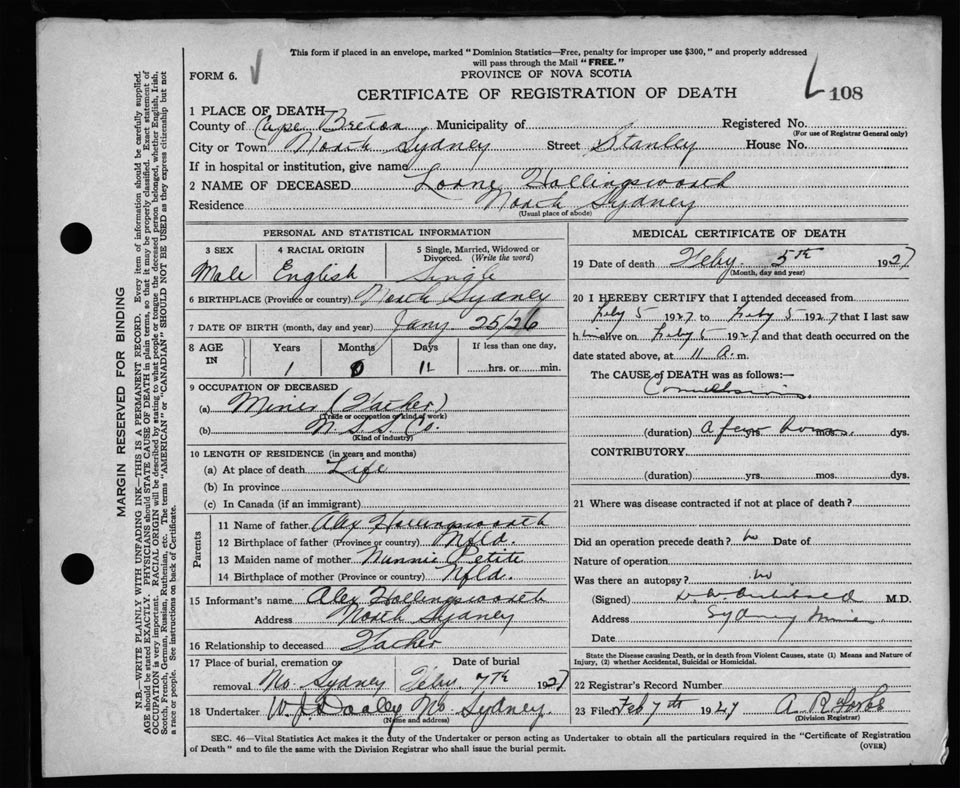 This form if placed in an envelope, marked "Dominion Statistics—Free, penalty for improper use $300," and properly addressed
will pass through the Mail "FREE."
FORM 6.
PROVINCE OF NOVA SCOTIA
CERTIFICATE OF REGISTRATION OF DEATH
L 108
1 PLACE OF DEATH
County of Cape Breton Municipality of Registered No.
(For use of Registrar General only)
City or Town North Sydney Street Stanley House No.
If in hospital or institution, give name
2 NAME OF DECEASED Lorne Hollingsworth
Residence North Sydney
(Usual place of abode)
PERSONAL AND STATISTICAL INFORMATION
3 SEX 4 RACIAL ORIGIN 5 Single, Married, Widowed or
Divorced. (Write the word)
Male English Single
6 BIRTHPLACE (Province or country) North Sydney
7 DATE OF BIRTH (month, day and year) Jany. 25/26
8 AGE IN Years Months Days If less than one day,
1 0 11 hrs. or min.
9 OCCUPATION OF DECEASED
(a) Miner (Father)
(Trade or occupation or kind of work)
(b) N.S.S. Co.
(Kind of industry)
10 LENGTH OF RESIDENCE (in years and months)
(a) At place of death Life
(b) In province
(c) In Canada (if an immigrant)
Parents
11 Name of father Alex Hollingsworth
12 Birthplace of father (Province or country) Nfld.
13 Maiden name of mother Nunnie Petite
14 Birthplace of mother (Province or country) Nfld.
15 Informant's name Alex Hollingsworth
Address North Sydney
16 Relationship to deceased Father
17 Place of burial, cremation or Date of burial
removal No. Sydney Feby. 7th 1927
18 Undertaker W. J. Dooley No. Sydney.
(Name and address)
MEDICAL CERTIFICATE OF DEATH
19 Date of death Feby 5th 1927
(Month, day and year)
20 I HEREBY CERTIFY that I attended deceased from
Feby 5 1927 to Feby 5 1927 that I last saw
h im alive on Feby 5 1927 and that death occurred on the
date stated above, at 11 A. m.
The CAUSE of DEATH was as follows:—
Convulsions.
(duration) A few hours. yrs. mos. dys.
CONTRIBUTORY
(duration) yrs. mos. dys.
21 Where was disease contracted if not at place of death?
Did an operation precede death? no Date of
Nature of operation
Was there an autopsy? no
(Signed) M.D.
Address Sydney Mines
Date
State the Disease causing Death, or in death from Violent Causes, state (1) Means and Nature of
Injury, (2) whether Accidental, Suicidal or Homicidal.
22 Registrar's Record Number
23 Filed Feb 7th 1927 A. R. Forbes
(Division Registrar)
SEC. 46—Vital Statistics Act makes it the duty of the Undertaker or person acting as Undertaker to obtain all the particulars required in the "Certificate of Registration
of Death" and to file the same with the Division Registrar who shall issue the burial permit.
(OVER)
MARGIN RESERVED FOR BINDING
N.B.—WRITE PLAINLY WITH UNFADING INK—THIS IS A PERMANENT RECORD. Every item of information should be carefully supplied.
AGE should be stated EXACTLY. PHYSICIANS should STATE CAUSE OF DEATH in plain terms, so that it may be properly classified. Exact statement of
OCCUPATION is very important. RACIAL ORIGIN will be described by stating to what people or tongue the deceased person belonged, whether English, Irish,
Scotch, French, German, Russian, Ruthenian, etc. The terms "AMERICAN" or "CANADIAN" SHOULD NOT BE USED as they express citizenship but not
a race or people. See instructions on back of Certificate.